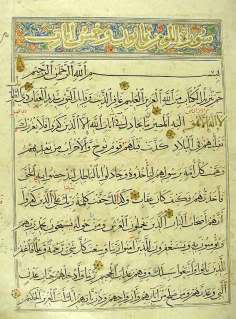 بسم الله الرحمن الرحيم
حم تنزيل الكتاب من الله العزيز العليم غافر الذنب وقابل التوب شديد العقاب ذي الطول
لا اله الا هو اليه المصير ما يجادل في آيات الله الا الذين كفروا فلا يغررك
تقلبهم في البلاد كذبت قبلهم قوم نوح والاحزاب من بعدهم
وهمت كل امة برسولهم لياخذوه وجادلوا بالباطل ليدحضوا به الحق
فاخذتهم فكيف كان عقاب وكذلك حقت كلمة ربك على الذين كفروا
انهم اصحاب النار الذين يحملون العرش ومن حوله يسبحون بحمد ربهم
ويؤمنون به ويستغفرون للذين آمنوا ربنا وسعت كل شيء رحمة وعلما فاغفر
للذين تابوا واتبعوا سبيلك وقهم عذاب الجحيم ربنا وادخلهم جنات عدن
التي وعدتهم ومن صلح من آبائهم وازواجهم وذرياتهم انك انت العزيز الحكيم